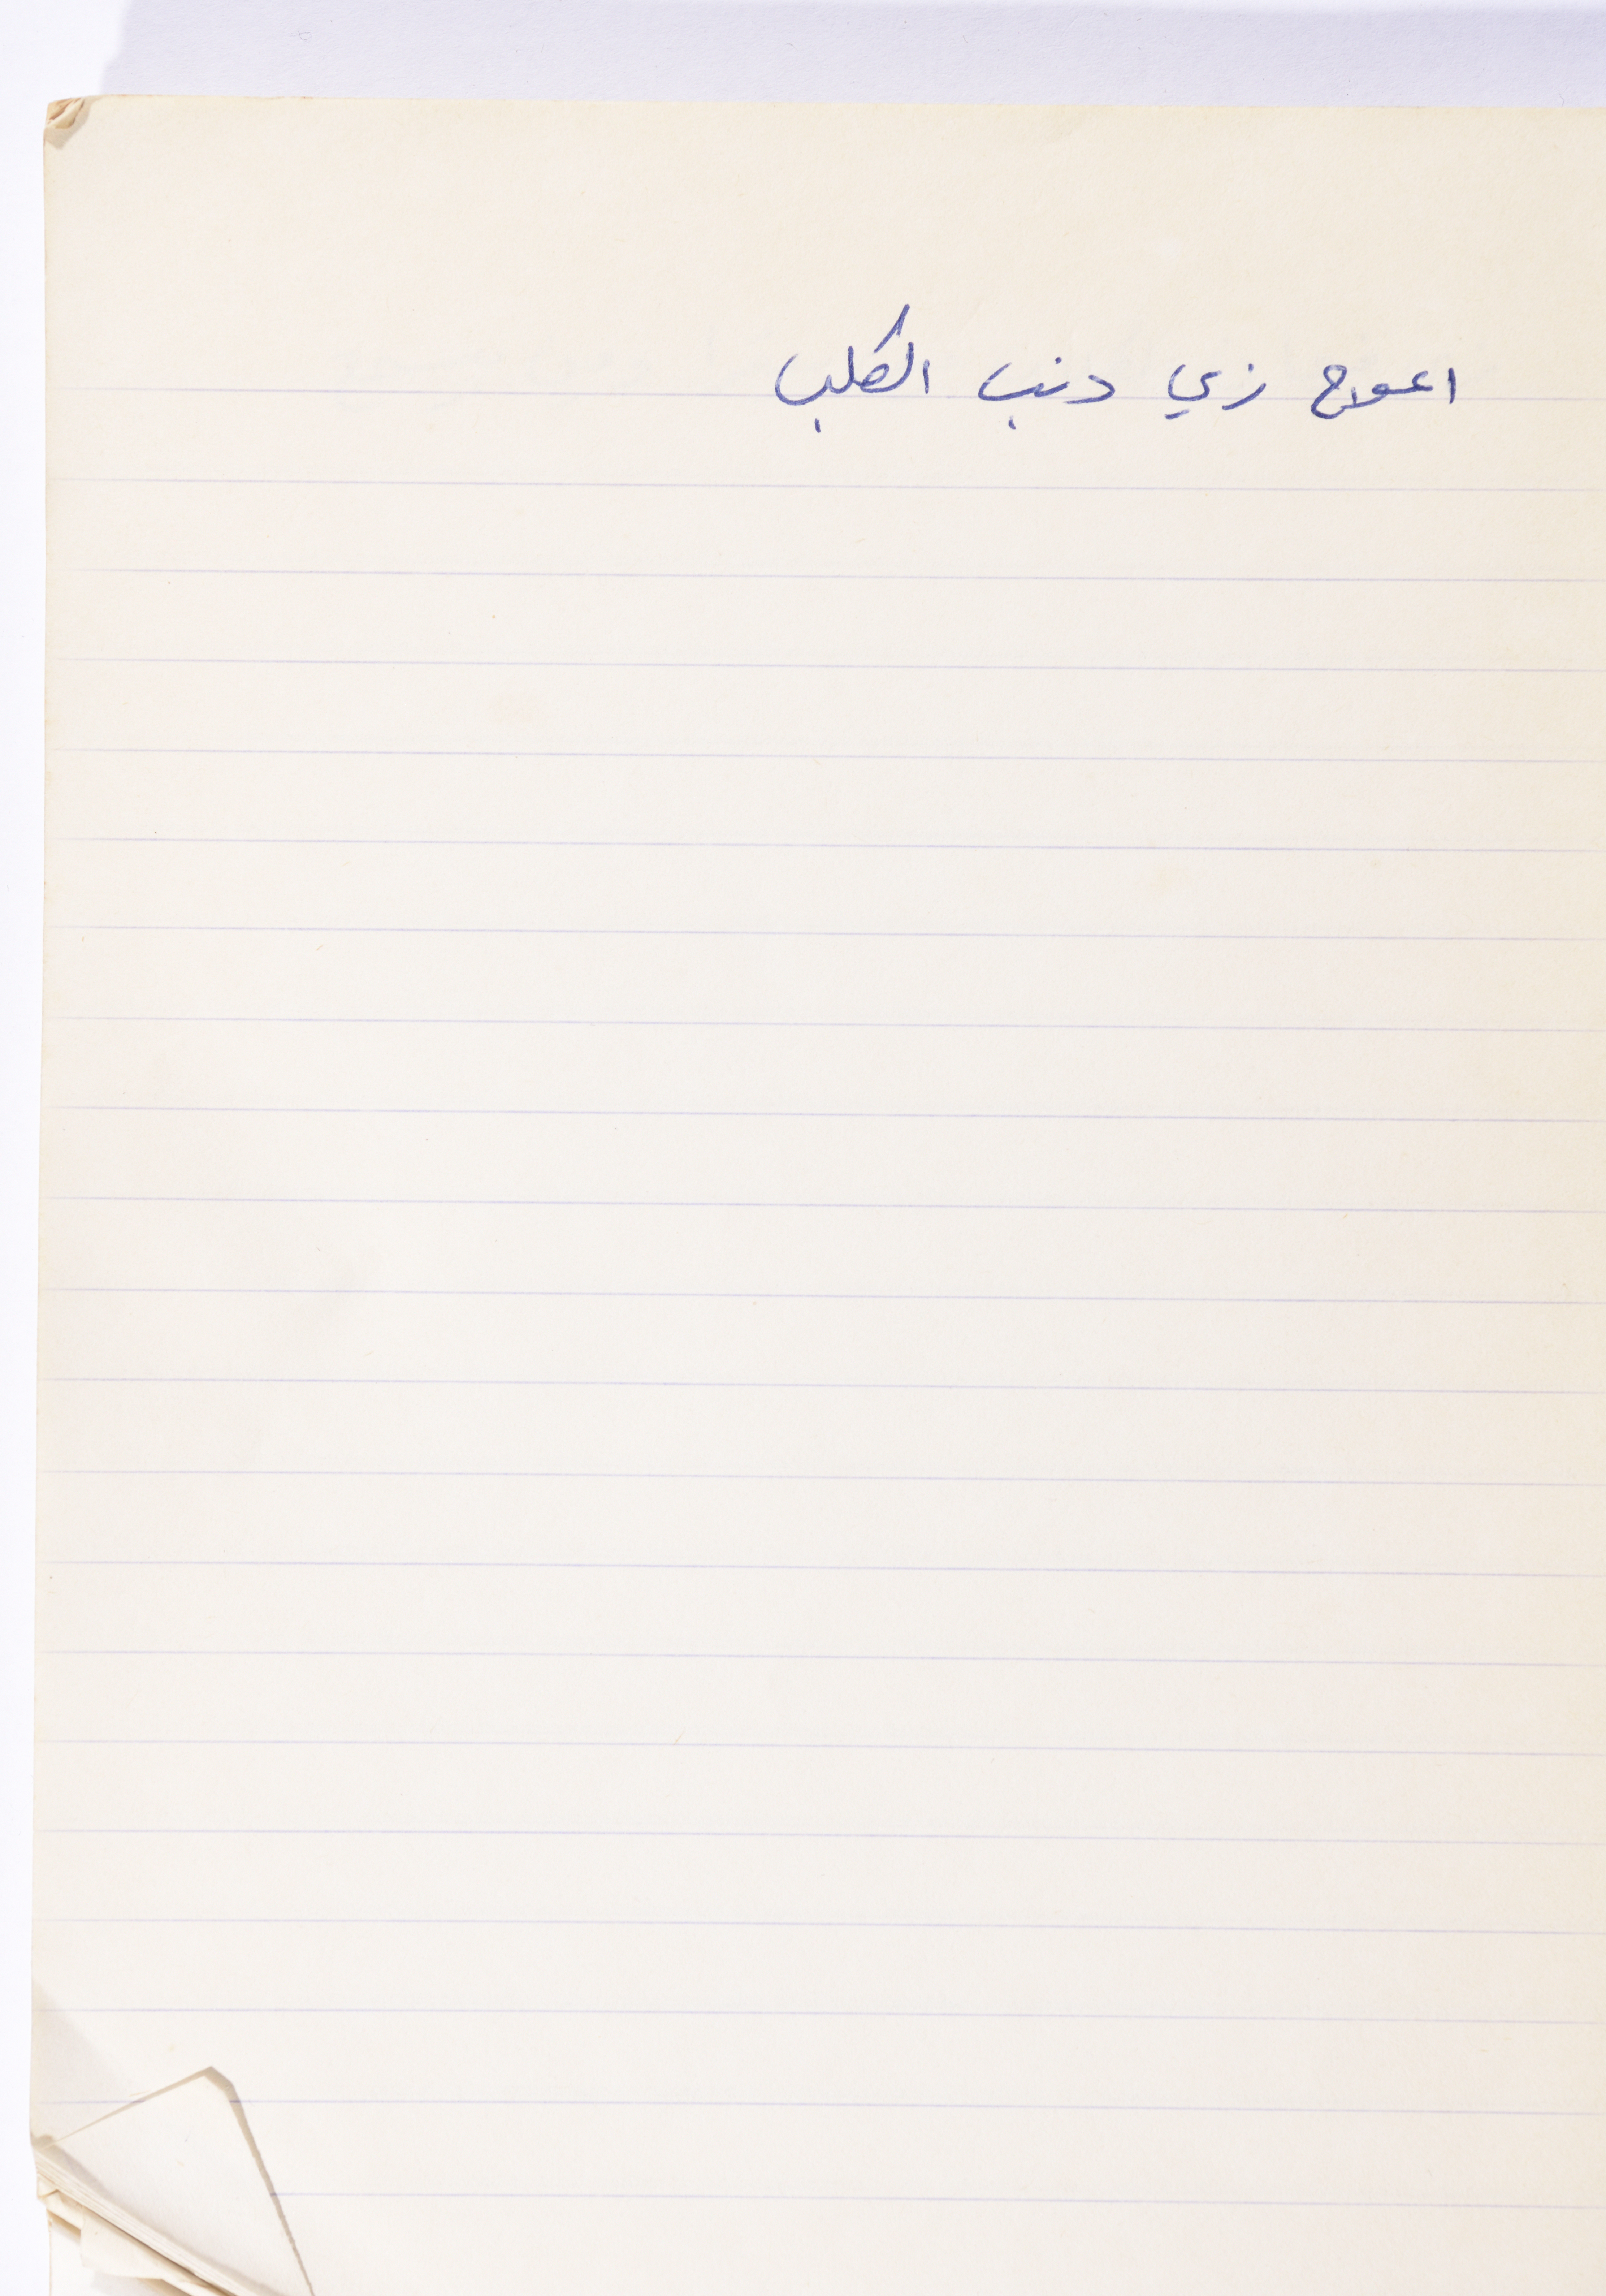 اعوج زي دنب الكلب